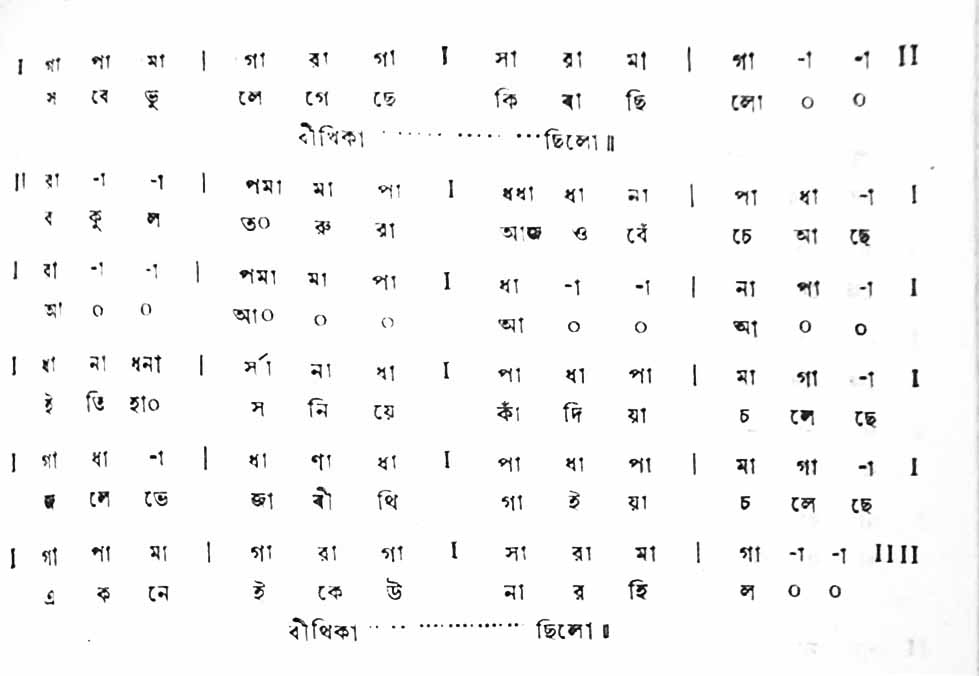 I গা পা মা | গা রা গা I সা রা মা | গা -া -া II
স বে ভু লে গে ছে কি বা ছি লো ০ ০
বীথিকা ·················· ছিলো॥
II রা -া -া | পমা মা পা I ধধা ধা না | পা ধা -া I
ব কু ল ত০ রু রা আজ ও বেঁ চে আ ছে
I রা -া -া | পমা মা পা I ধা -া -া | না পা -া I
আ ০ ০ আ০ ০ ০ আ ০ ০ আ ০ ০
I ধা না ধনা | র্সা না ধা I পা ধা পা | মা গা -া I
ই তি হা০ স নি য়ে কাঁ দি য়া চ লে ছে
I গা ধা -া | ধা ণা ধা I পা ধা পা | মা গা -া I
জ লে ভে জা বী থি গা ই য়া চ লে ছে
I গা পা মা | গা রা গা I সা রা মা | গা -া -া IIII
এ ক নে ই কে উ না র হি ল ০ ০
বীথিকা ·················· ছিলো॥